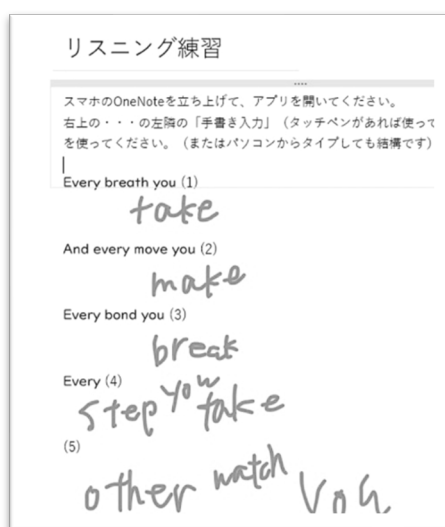 リスニング練習
スマホのOneNoteを立ち上げて、アプリを開いてください。
右上の・・・の左隣の「手書き入力」（タッチペンがあれば使って
を使ってください。（またはパソコンからタイプしても結構です）
Every breath you (1)
take
And every move you (2)
make
Every bond you (3)
break
Every (4)
step you take
(5)
other watch you